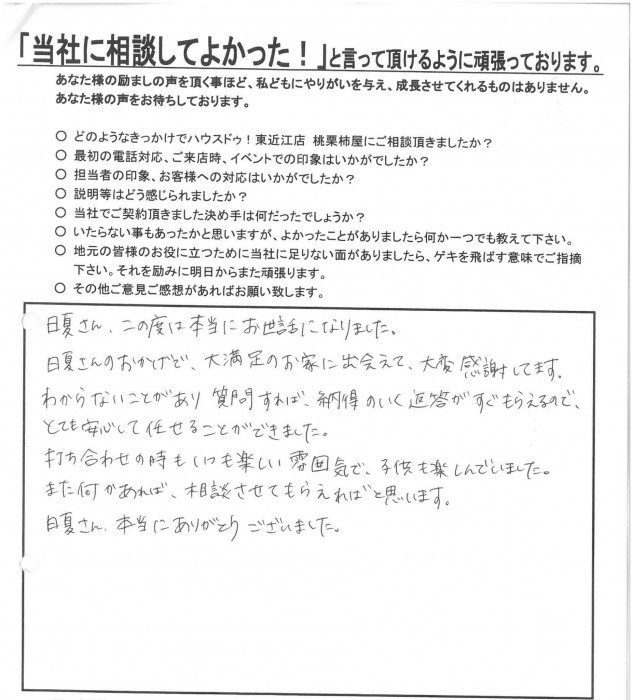 「当社に相談してよかった！」と言って頂けるように頑張っております。
あなた様の励ましの声を頂く事ほど、私どもにやりがいを与え、成長させてくれるものはありません。
あなた様の声をお待ちしております。
○ どのようなきっかけでハウスドゥ！東近江店 桃栗柿屋にご相談頂きましたか？
○ 最初の電話対応、ご来店時、イベントでの印象はいかがでしたか？
○ 担当者の印象、お客様への対応はいかがでしたか？
○ 説明等はどう感じられましたか？
○ 当社でご契約頂きました決め手は何だったでしょうか？
○ いたらない事もあったかと思いますが、よかったことがありましたら何か一つでも教えて下さい。
○ 地元の皆様のお役に立つために当社に足りない面がありましたら、ゲキを飛ばす意味でご指摘
下さい。それを励みに明日からまた頑張ります。
○ その他ご意見ご感想があればお願い致します。
日夏さん、この度は本当にお世話になりました。
日夏さんのおかげで、大満足のお家に出会えて、大変感謝してます。
わからないことがあり質問すれば、納得のいく返答がすぐもらえるので、
とても安心して任せることができました。
打ち合わせの時もいつも楽しい雰囲気で、子供も楽しんでいました。
また何かあれば、相談させてもらえればと思います。
日夏さん、本当にありがとうございました。